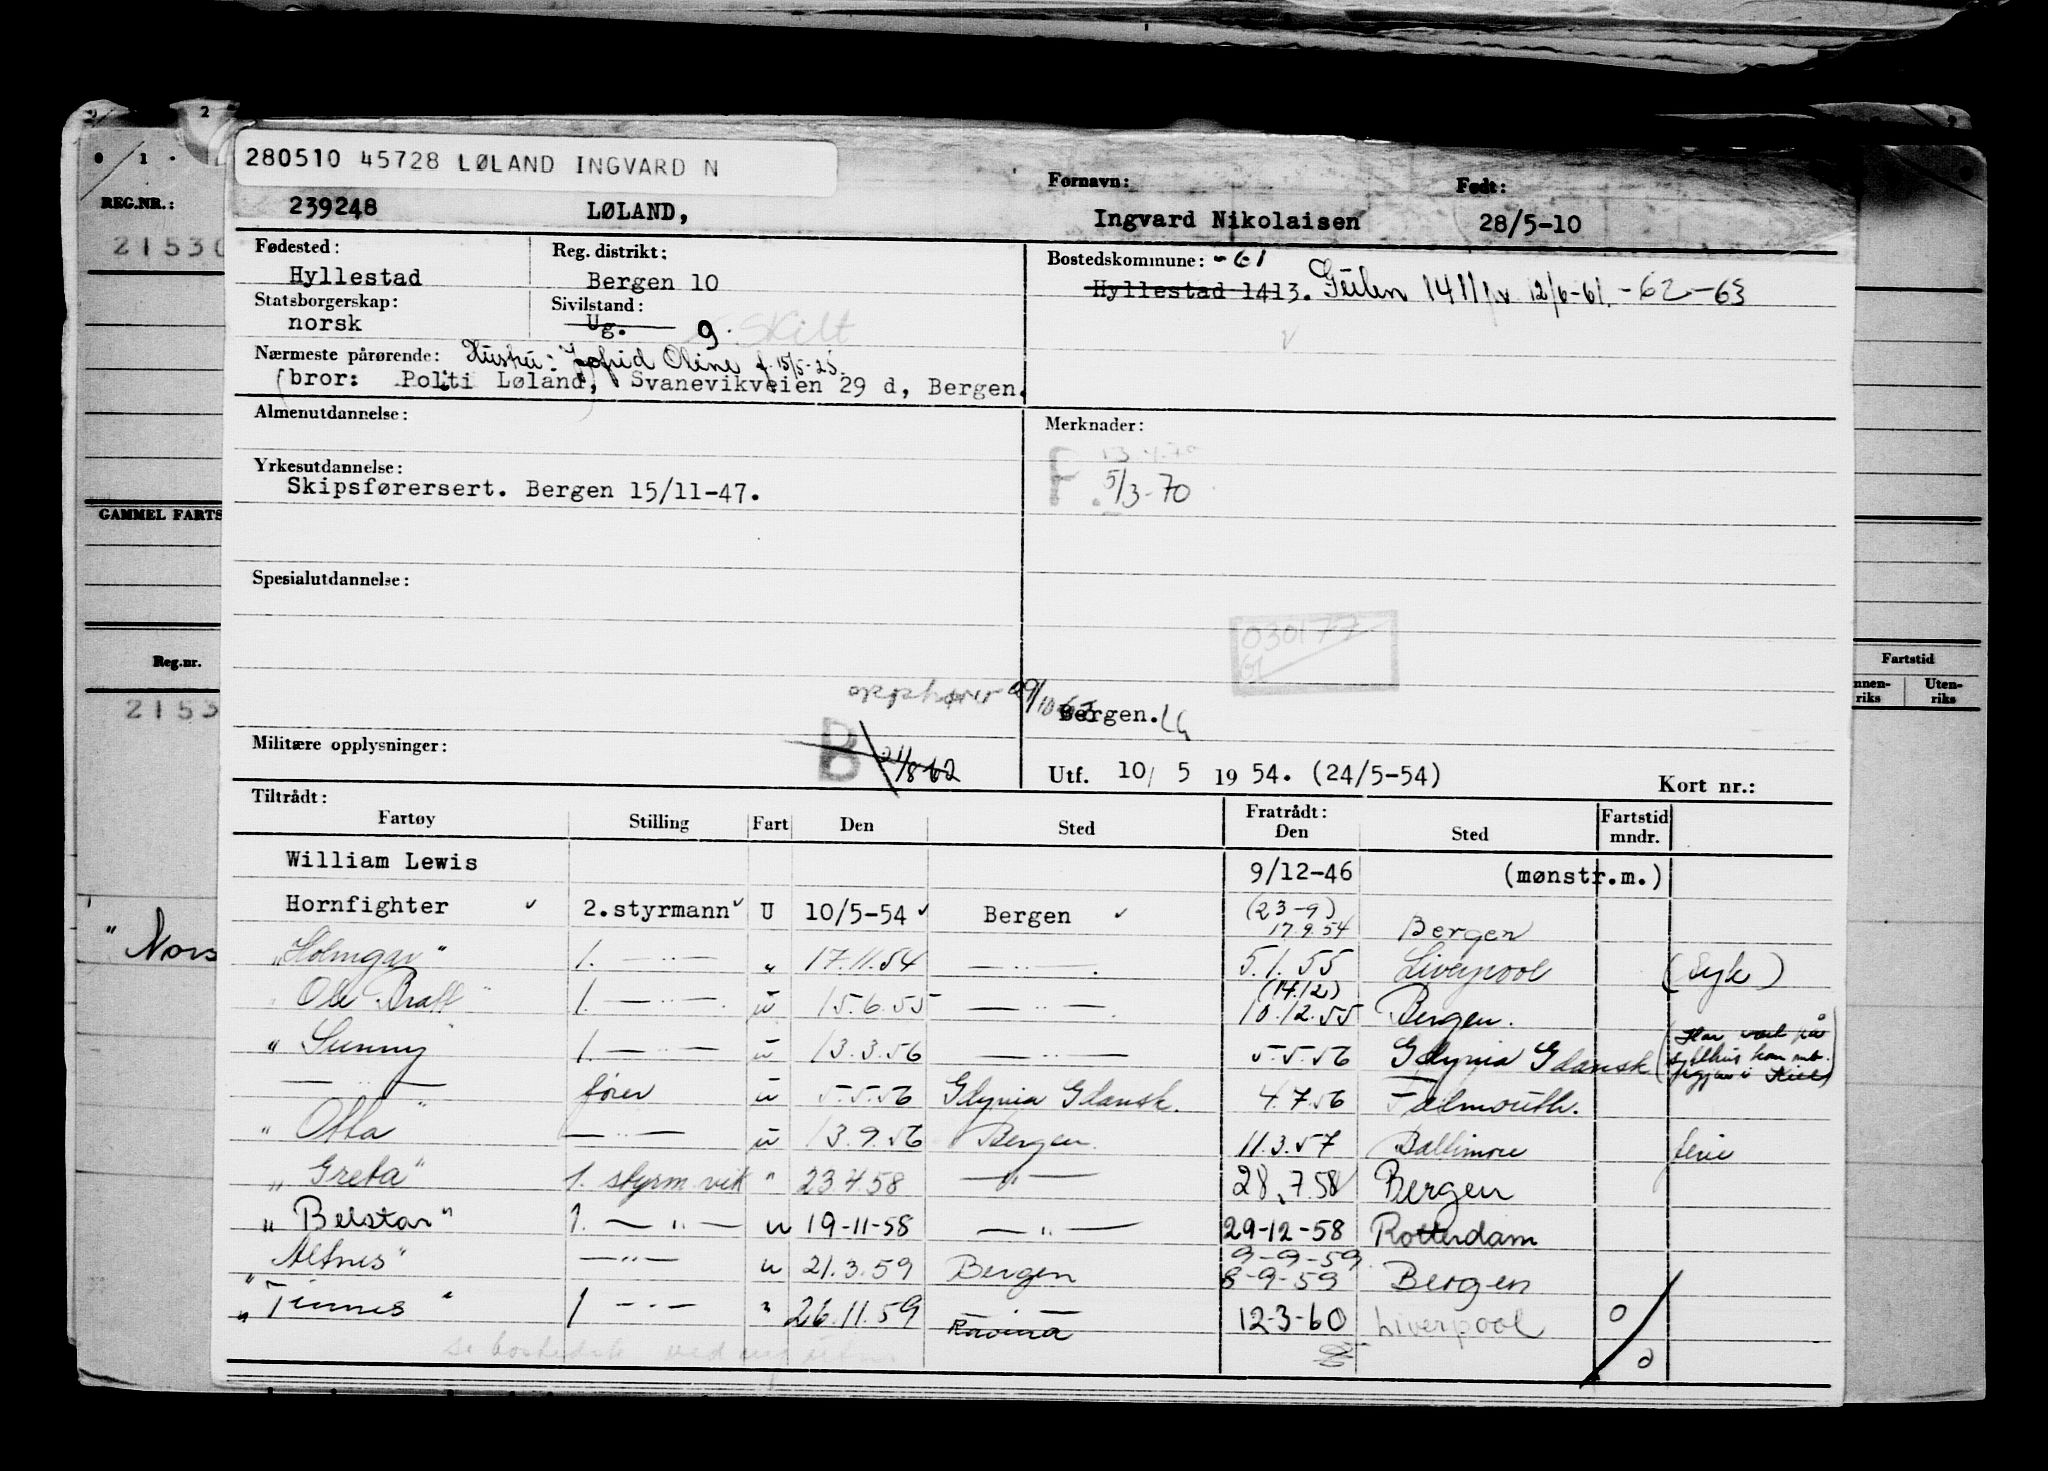 280510 45728 LØLAND INGVARD N
REG.NR.: 239248 LØLAND, Fornavn: Ingvard Nikolaisen Født: 28/5-10
Fødested: Reg. distrikt: Bostedskommune: -61
Hyllestad Bergen 10 Hyllestad 1413. 1411 12/6-61. -62-63
Statsborgerskap: Sivilstand:
norsk Ug. g. skilt
Nærmeste pårørende: Hustru: Oline f. 15/5-25.
(bror: Polti Løland, Svanevikveien 29 d, Bergen.
Almenutdannelse: Merknader:
Yrkesutdannelse: F
Skipsførersert. Bergen 15/11-47. 5/3-70
GAMMEL FARTS
Spesialutdannelse:
030177
61
Reg.nr. Fartstid
2153 Uten-
riks riks
opphører 29/10 63
Bergen.
Militære opplysninger: B 21/8-62
Utf. 10/ 5 19 54. (24/5-54) Kort nr.:
Tiltrådt: Fratrådt: Fartstid
Fartøy Stilling Fart Den Sted Den Sted mndr.
William Lewis 9/12-46 (mønstr.m.)
Hornfighter ✓ 2.styrmann ✓ U 10/5-54 ✓ Bergen ✓ (23-9) 17.9.54 Bergen
"Holmgar" 1. — " — " 17.11.54 — " — . 5.1.55 Liverpool (Syk)
"Ole Bratt" 1. — " — . u 15.6.55 — " — . (14.12) 10.12.55 Bergen.
"Sunny" 1. — " — u 13.3.56 — " — 5.5.56 Gdynia Gdansk
— " — fører u 5.5.56 Gdynia Gdansk. 4.7.56 Falmouth.
"Otta" — " — u 13.9.56 Bergen. 11.3.57 Baltimore ferie
"Greta" 1. styrm vik " 23.4.58 — " — 28.7.58 Bergen
"Belstar" 1. — " — u 19-11-58 — " — 29-12-58 Rotterdam
"Altnes" — " — u 21.3.59 Bergen 9-9-59 8-9-59 Bergen
"Tinnes" 1 — " — " 26.11.59 12-3-60 Liverpool 0
"Nors